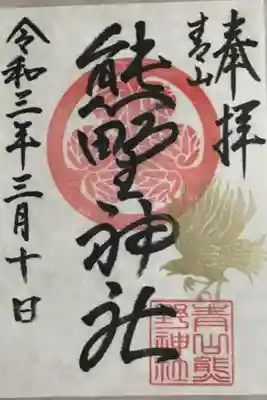 奉拝
青山
熊野神社
令和三年三月十日
青山熊
野神社